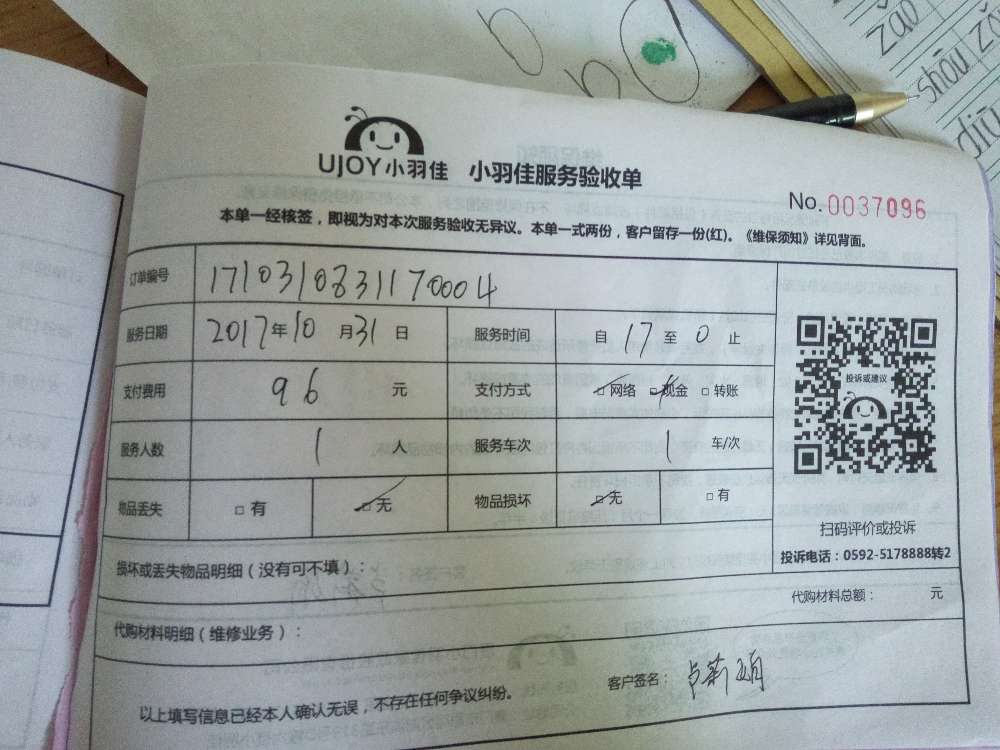 zǎo
shōu
UJOY小羽佳 小羽佳服务验收单
No. 0037096
本单一经核签，即视为对本次服务验收无异议。本单一式两份，客户留存一份(红)。《维保须知》详见背面。
订单编号 1710310831170004
服务日期 2017年10月31日 服务时间 自17至0止
支付费用 96元 支付方式 □网络 □现金 □转账
投诉或建议
服务人数 1人 服务车次 1车/次
物品丢失 □有 □无 物品损坏 □无 □有
扫码评价或投诉
投诉电话：0592-5178888转2
损坏或丢失物品明细（没有可不填）：
代购材料总额： 元
代购材料明细（维修业务）：
客户签名：
以上填写信息已经本人确认无误，不存在任何争议纠纷。